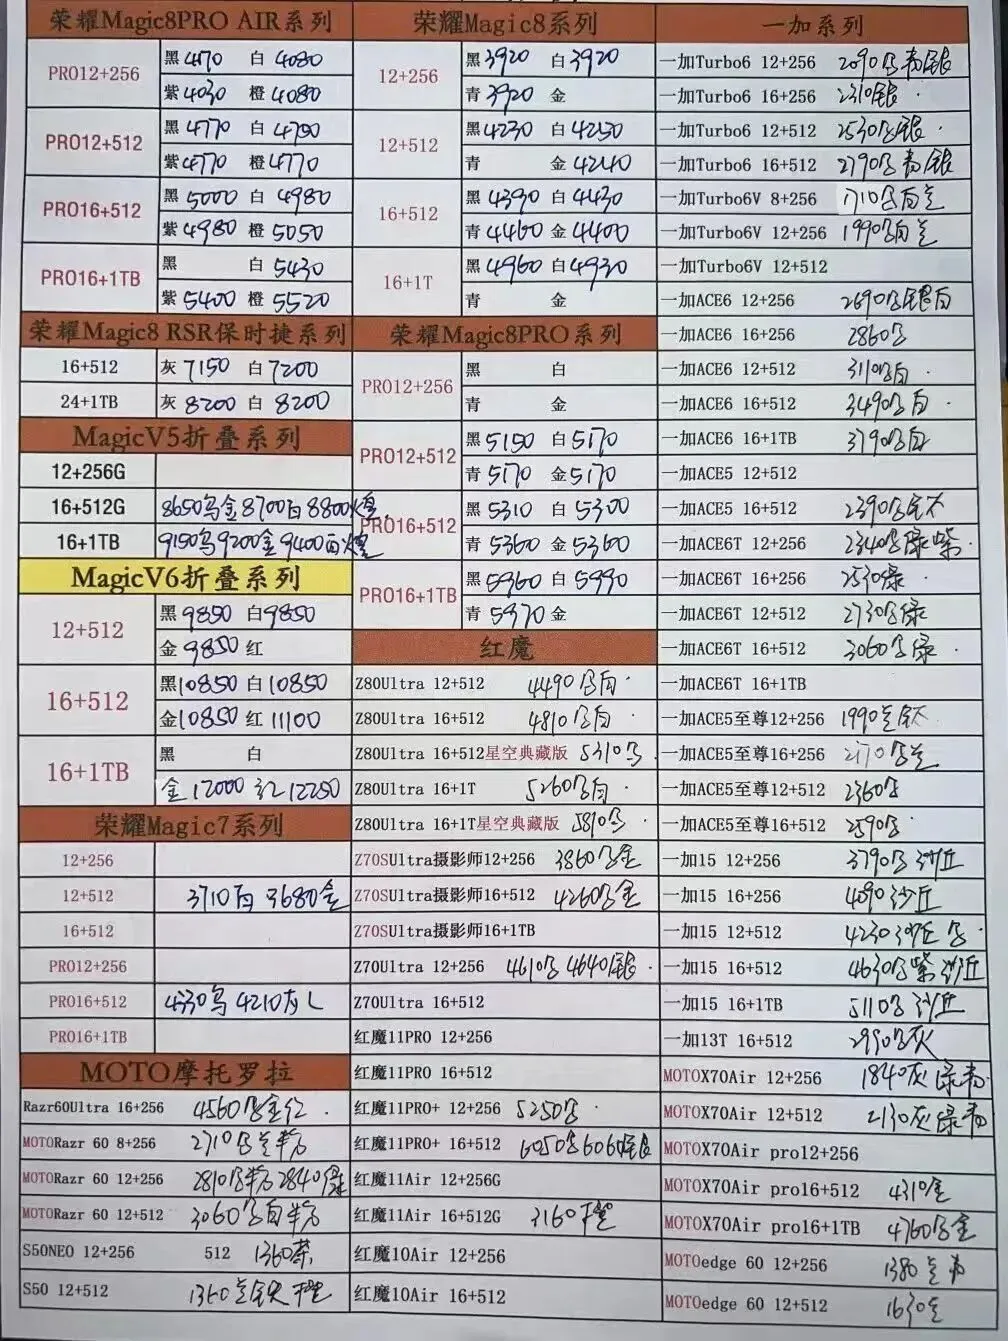 荣耀Magic8PRO AIR系列
PRO12+256 黑4170 白4080
紫4030 橙4080
PRO12+512 黑4770 白4790
紫4770 橙4770
PRO16+512 黑5000 白4980
紫4980 橙5050
PRO16+1TB 黑 白5430
紫5400 橙5520
荣耀Magic8 RSR保时捷系列
16+512 灰7150 白7200
24+1TB 灰8200 白8200
MagicV5折叠系列
12+256G
16+512G 8650乌金8700白8800煌
16+1TB 9150乌9200金9400白煌
MagicV6折叠系列
12+512 黑9850 白9850
金9850 红
16+512 黑10850 白10850
金10850 红11100
16+1TB 黑 白
金12000 红12250
荣耀Magic7系列
12+256
12+512 3710白 3680金
16+512
PRO12+256
PRO16+512 4330乌 4210灰
PRO16+1TB
MOTO摩托罗拉
Razr60Ultra 16+256 4560
MOTORazr 60 8+256 2710
MOTORazr 60 12+256 2810 2840绿
MOTORazr 60 12+512 3060
S50NEO 12+256 512 1360茶
S50 12+512 1360
荣耀Magic8系列
12+256 黑3920 白3920
青3920 金
12+512 黑4230 白4250
青 金4240
16+512 黑4390 白4430
青4460 金4400
16+1T 黑4960 白4930
青 金
荣耀Magic8PRO系列
PRO12+256 黑 白
青 金
PRO12+512 黑5150 白5170
青5170 金5170
PRO16+512 黑5310 白5300
青5360 金5360
PRO16+1TB 黑5960 白5990
青5970 金
红魔
Z80Ultra 12+512 4490
Z80Ultra 16+512 4810
Z80Ultra 16+512星空典藏版 5310
Z80Ultra 16+1T 5260
Z80Ultra 16+1T星空典藏版 5810
Z70SUltra摄影师12+256 3860
Z70SUltra摄影师16+512 4260
Z70SUltra摄影师16+1TB
Z70Ultra 12+256 4610 4640银
Z70Ultra 16+512
红魔11PRO 12+256
红魔11PRO 16+512
红魔11PRO+ 12+256 5250
红魔11PRO+ 16+512 6050 6060银
红魔11Air 12+256G
红魔11Air 16+512G 3160
红魔10Air 12+256
红魔10Air 16+512
一加系列
一加Turbo6 12+256 2090
一加Turbo6 16+256 2310银
一加Turbo6 12+512 2530 银
一加Turbo6 16+512 2790 银
一加Turbo6V 8+256 1710
一加Turbo6V 12+256 1990
一加Turbo6V 12+512
一加ACE6 12+256 2690
一加ACE6 16+256 2860
一加ACE6 12+512 3110
一加ACE6 16+512 3490
一加ACE6 16+1TB 3790
一加ACE5 12+512
一加ACE5 16+512 2390
一加ACE6T 12+256 2340 绿紫
一加ACE6T 16+256 2530绿
一加ACE6T 12+512 2730 绿
一加ACE6T 16+512 3060 绿
一加ACE6T 16+1TB
一加ACE5至尊12+256 1990
一加ACE5至尊16+256 2170
一加ACE5至尊12+512 2360
一加ACE5至尊16+512 2590
一加15 12+256 3790 沙丘
一加15 16+256 4090沙丘
一加15 12+512 4230沙丘
一加15 16+512 4630 紫沙丘
一加15 16+1TB 5110 沙丘
一加13T 16+512 2990 灰
MOTOX70Air 12+256 1840灰绿
MOTOX70Air 12+512 2130灰绿
MOTOX70Air pro12+256
MOTOX70Air pro16+512 4310金
MOTOX70Air pro16+1TB 4760 金
MOTOedge 60 12+256 1380
MOTOedge 60 12+512 1630